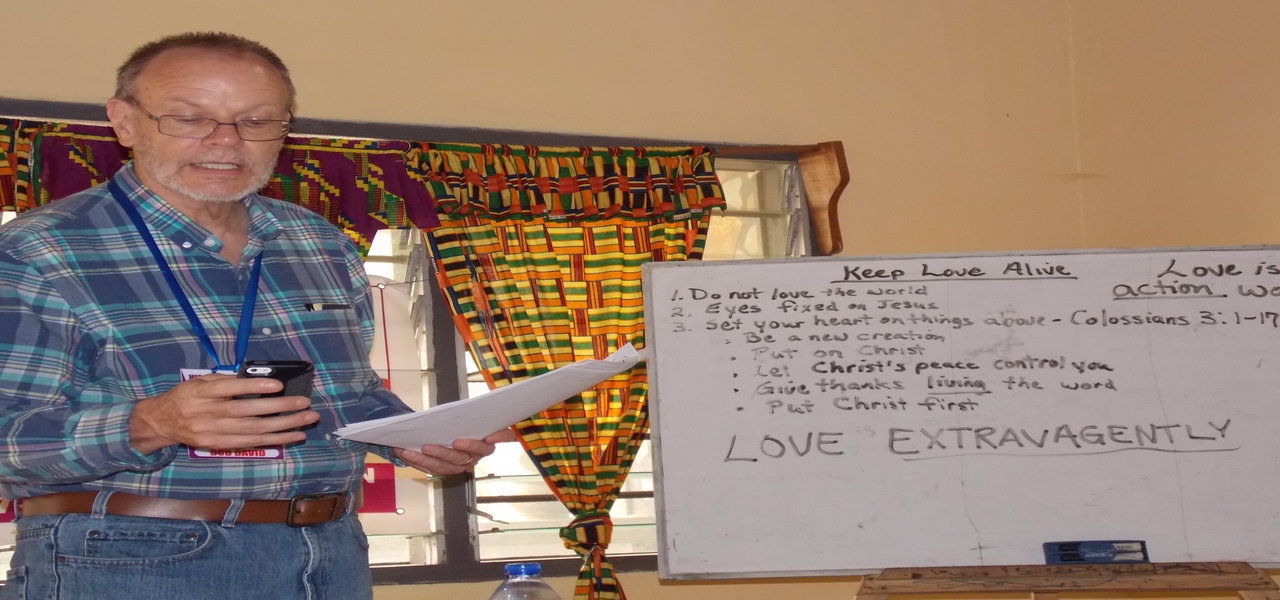 Keep Love Alive
Love is
action wo
1. Do not love the world
2. Eyes fixed on Jesus
3. Set your heart on things above - Colossians 3:1-17
• Be a new creation
• Put on Christ
• Let Christ's peace control you
• Give thanks living the word
• Put Christ first
LOVE EXTRAVAGENTLY
BOB DAVID